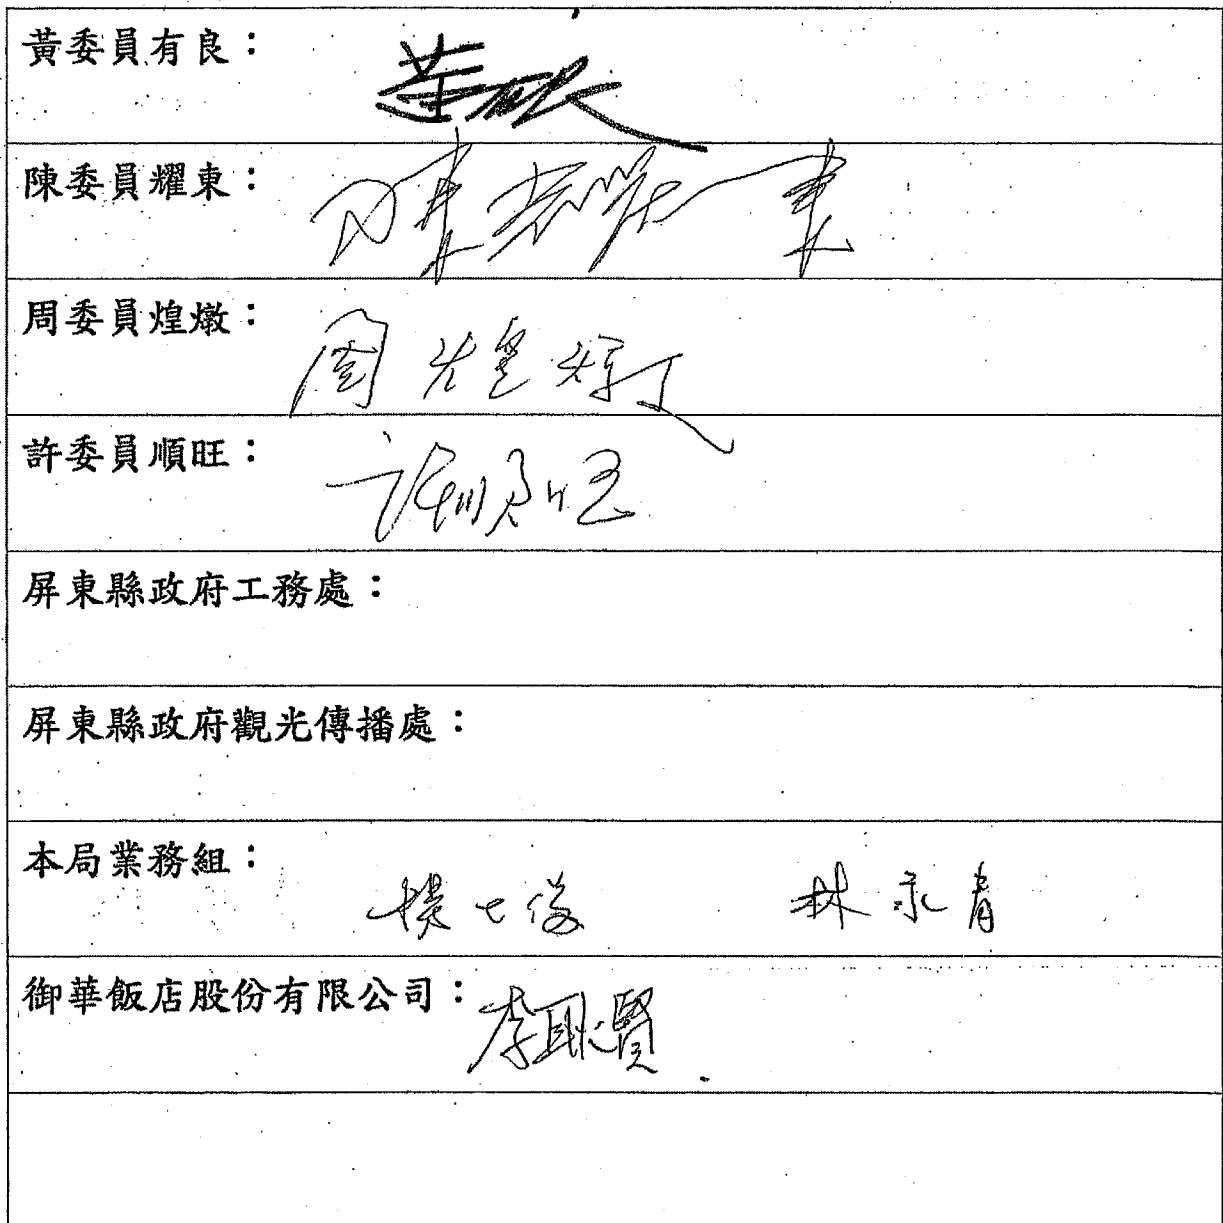 黃委員有良：黃有良
陳委員耀東：陳耀東
周委員煌燉：周煌燉
許委員順旺：許順旺
屏東縣政府工務處：
屏東縣政府觀光傳播處：
本局業務組：楊 俊 林永青
御華飯店股份有限公司：李 賢